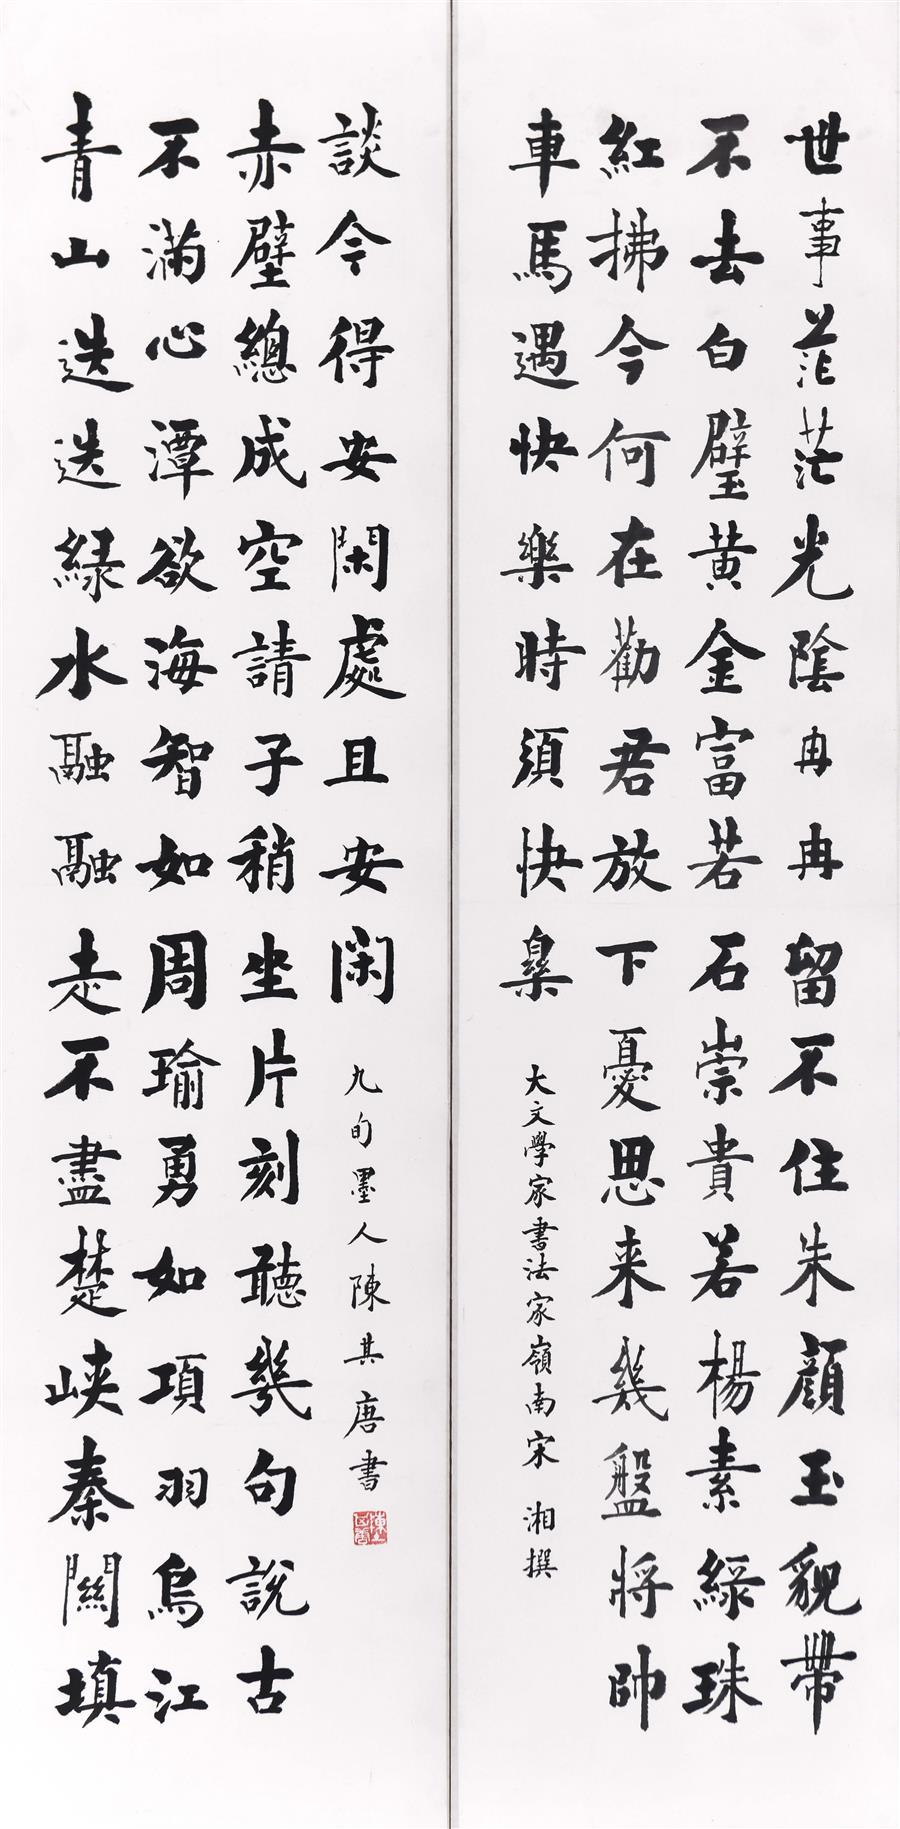 世事茫茫光陰冉冉留不住朱顔玉貌帶
不去白璧黃金富若石崇貴若楊素綠珠
紅拂今何在勸君放下憂思来幾盤將帥
車馬遇快樂時須快樂
大文學家書法家嶺南宋 湘撰
青山迭迭緑水融融走不盡楚峽秦關填
不滿心潭欲海智如周瑜勇如項羽烏江
赤壁總成空請子稍坐片刻聽幾句說古
談今得安閑處且安閑
九旬墨人陳其唐書